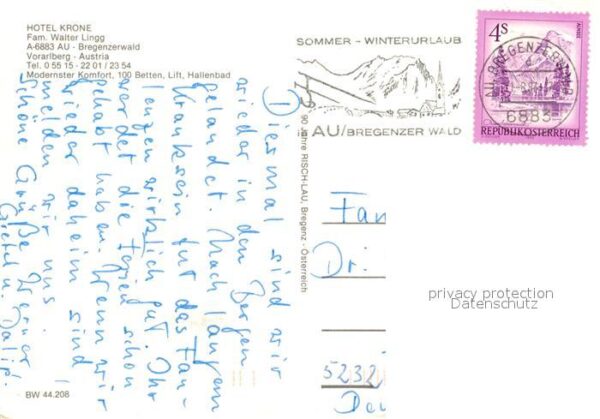 HOTEL KRONE
Fam. Walter Lingg
A-6883 AU - Bregenzerwald
Vorarlberg - Austria
Tel. 0 55 15 - 22 01 / 23 54
Modernster Komfort, 100 Betten, Lift, Hallenbad
SOMMER - WINTERURLAUB
AU/BREGENZER WALD
4S
AU, BREGENZERWALD
6883
REPUBLIK ÖSTERREICH
Diesmal sind wir
wieder in den Bergen
gelandet. Nach langem
Kranksein tut das Fau-
lenzen wirklich gut. Ihr
werdet die Ferien schon
gehabt haben. Wenn wir
wieder daheim sind
melden wir uns.
Schöne Grüße
90 Jahre RISCH-LAU, Bregenz - Österreich
Fam
Dr.
5232
privacy protection
Datenschutz
BW 44.208